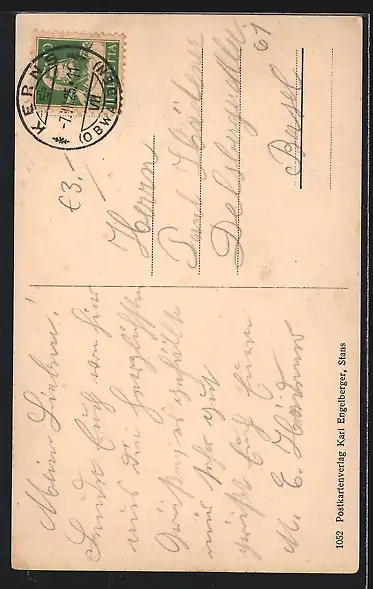 Meine Lieben!
Sende Euch von hier
aus die herzlichsten
Grüsse, es gefällt
mir sehr gut
grüsst Euch Euer
M. E. Hädener
HELVETIA
KERNS
(OBW.)
-7.VII.25
€3,-
Herrn
Paul Hädener
Delsbergerallee 61
Basel
1052 Postkartenverlag Karl Engelberger, Stans